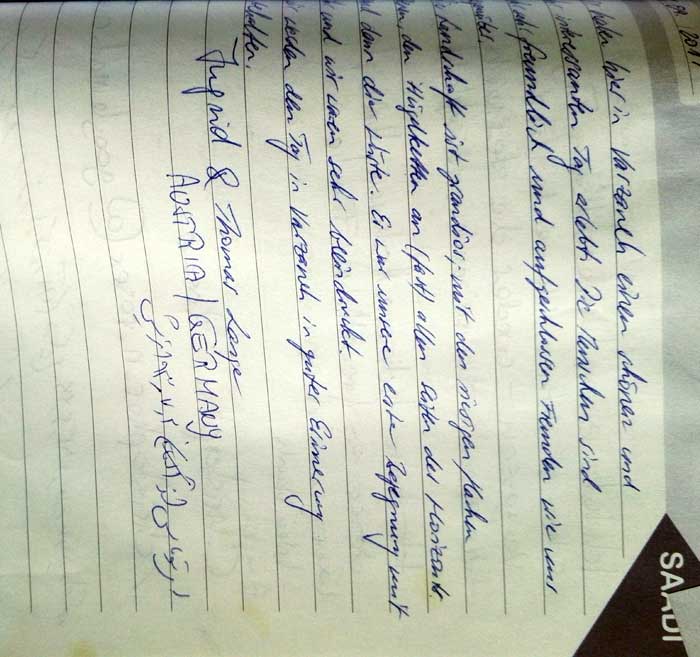 2011
SAADI
haben hier in Varzaneh einen schönen und
interessanten Tag erlebt. Die Menschen sind
freundlich und aufgeschlossen Fremden wie uns
Landschaft ist grandios - mit den riesigen Flächen
den Hügelketten an (fast) allen Seiten des Horizonts.
dann die Wüste. Es war unsere erste Begegnung mit
und wir waren sehr beeindruckt.
werden den Tag in Varzaneh in guter Erinnerung
Ingrid & Thomas Lange
AUSTRIA / GERMANY